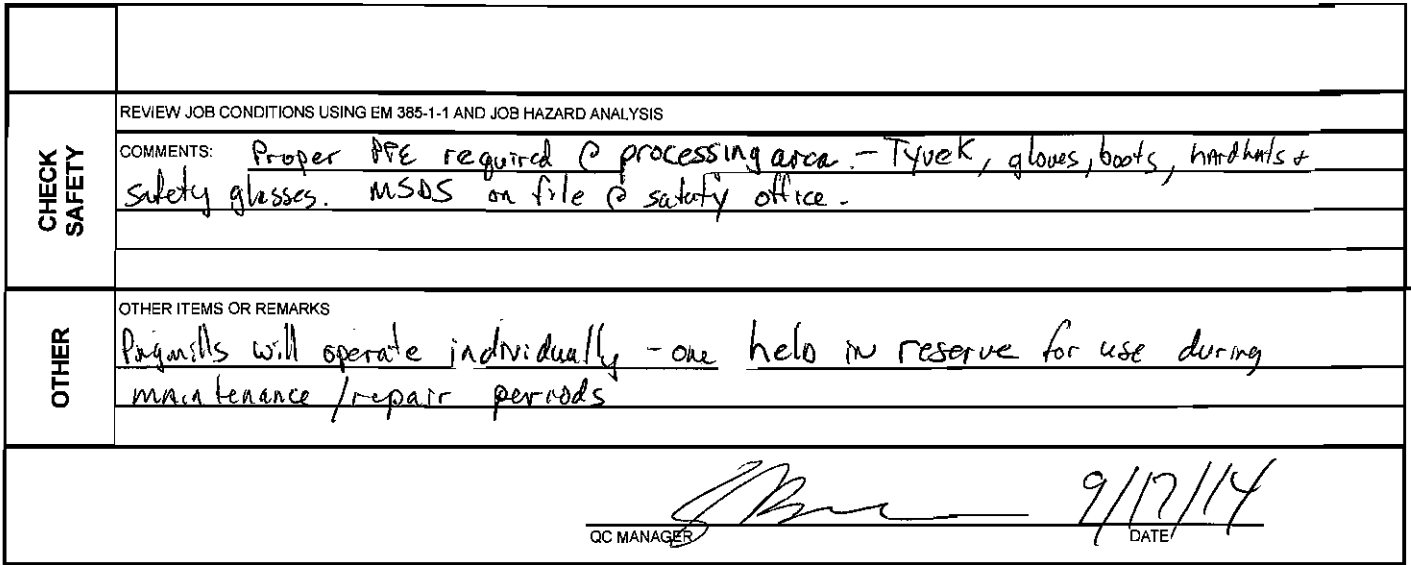 CHECK SAFETY
REVIEW JOB CONDITIONS USING EM 385-1-1 AND JOB HAZARD ANALYSIS
COMMENTS: Proper PPE required @ processing area. - Tyvek, gloves, boots, hardhats +
safety glasses. MSDS on file @ safety office.
OTHER
OTHER ITEMS OR REMARKS
Pugmills will operate individually - one held in reserve for use during
maintenance / repair periods
9/17/14
QC MANAGER DATE